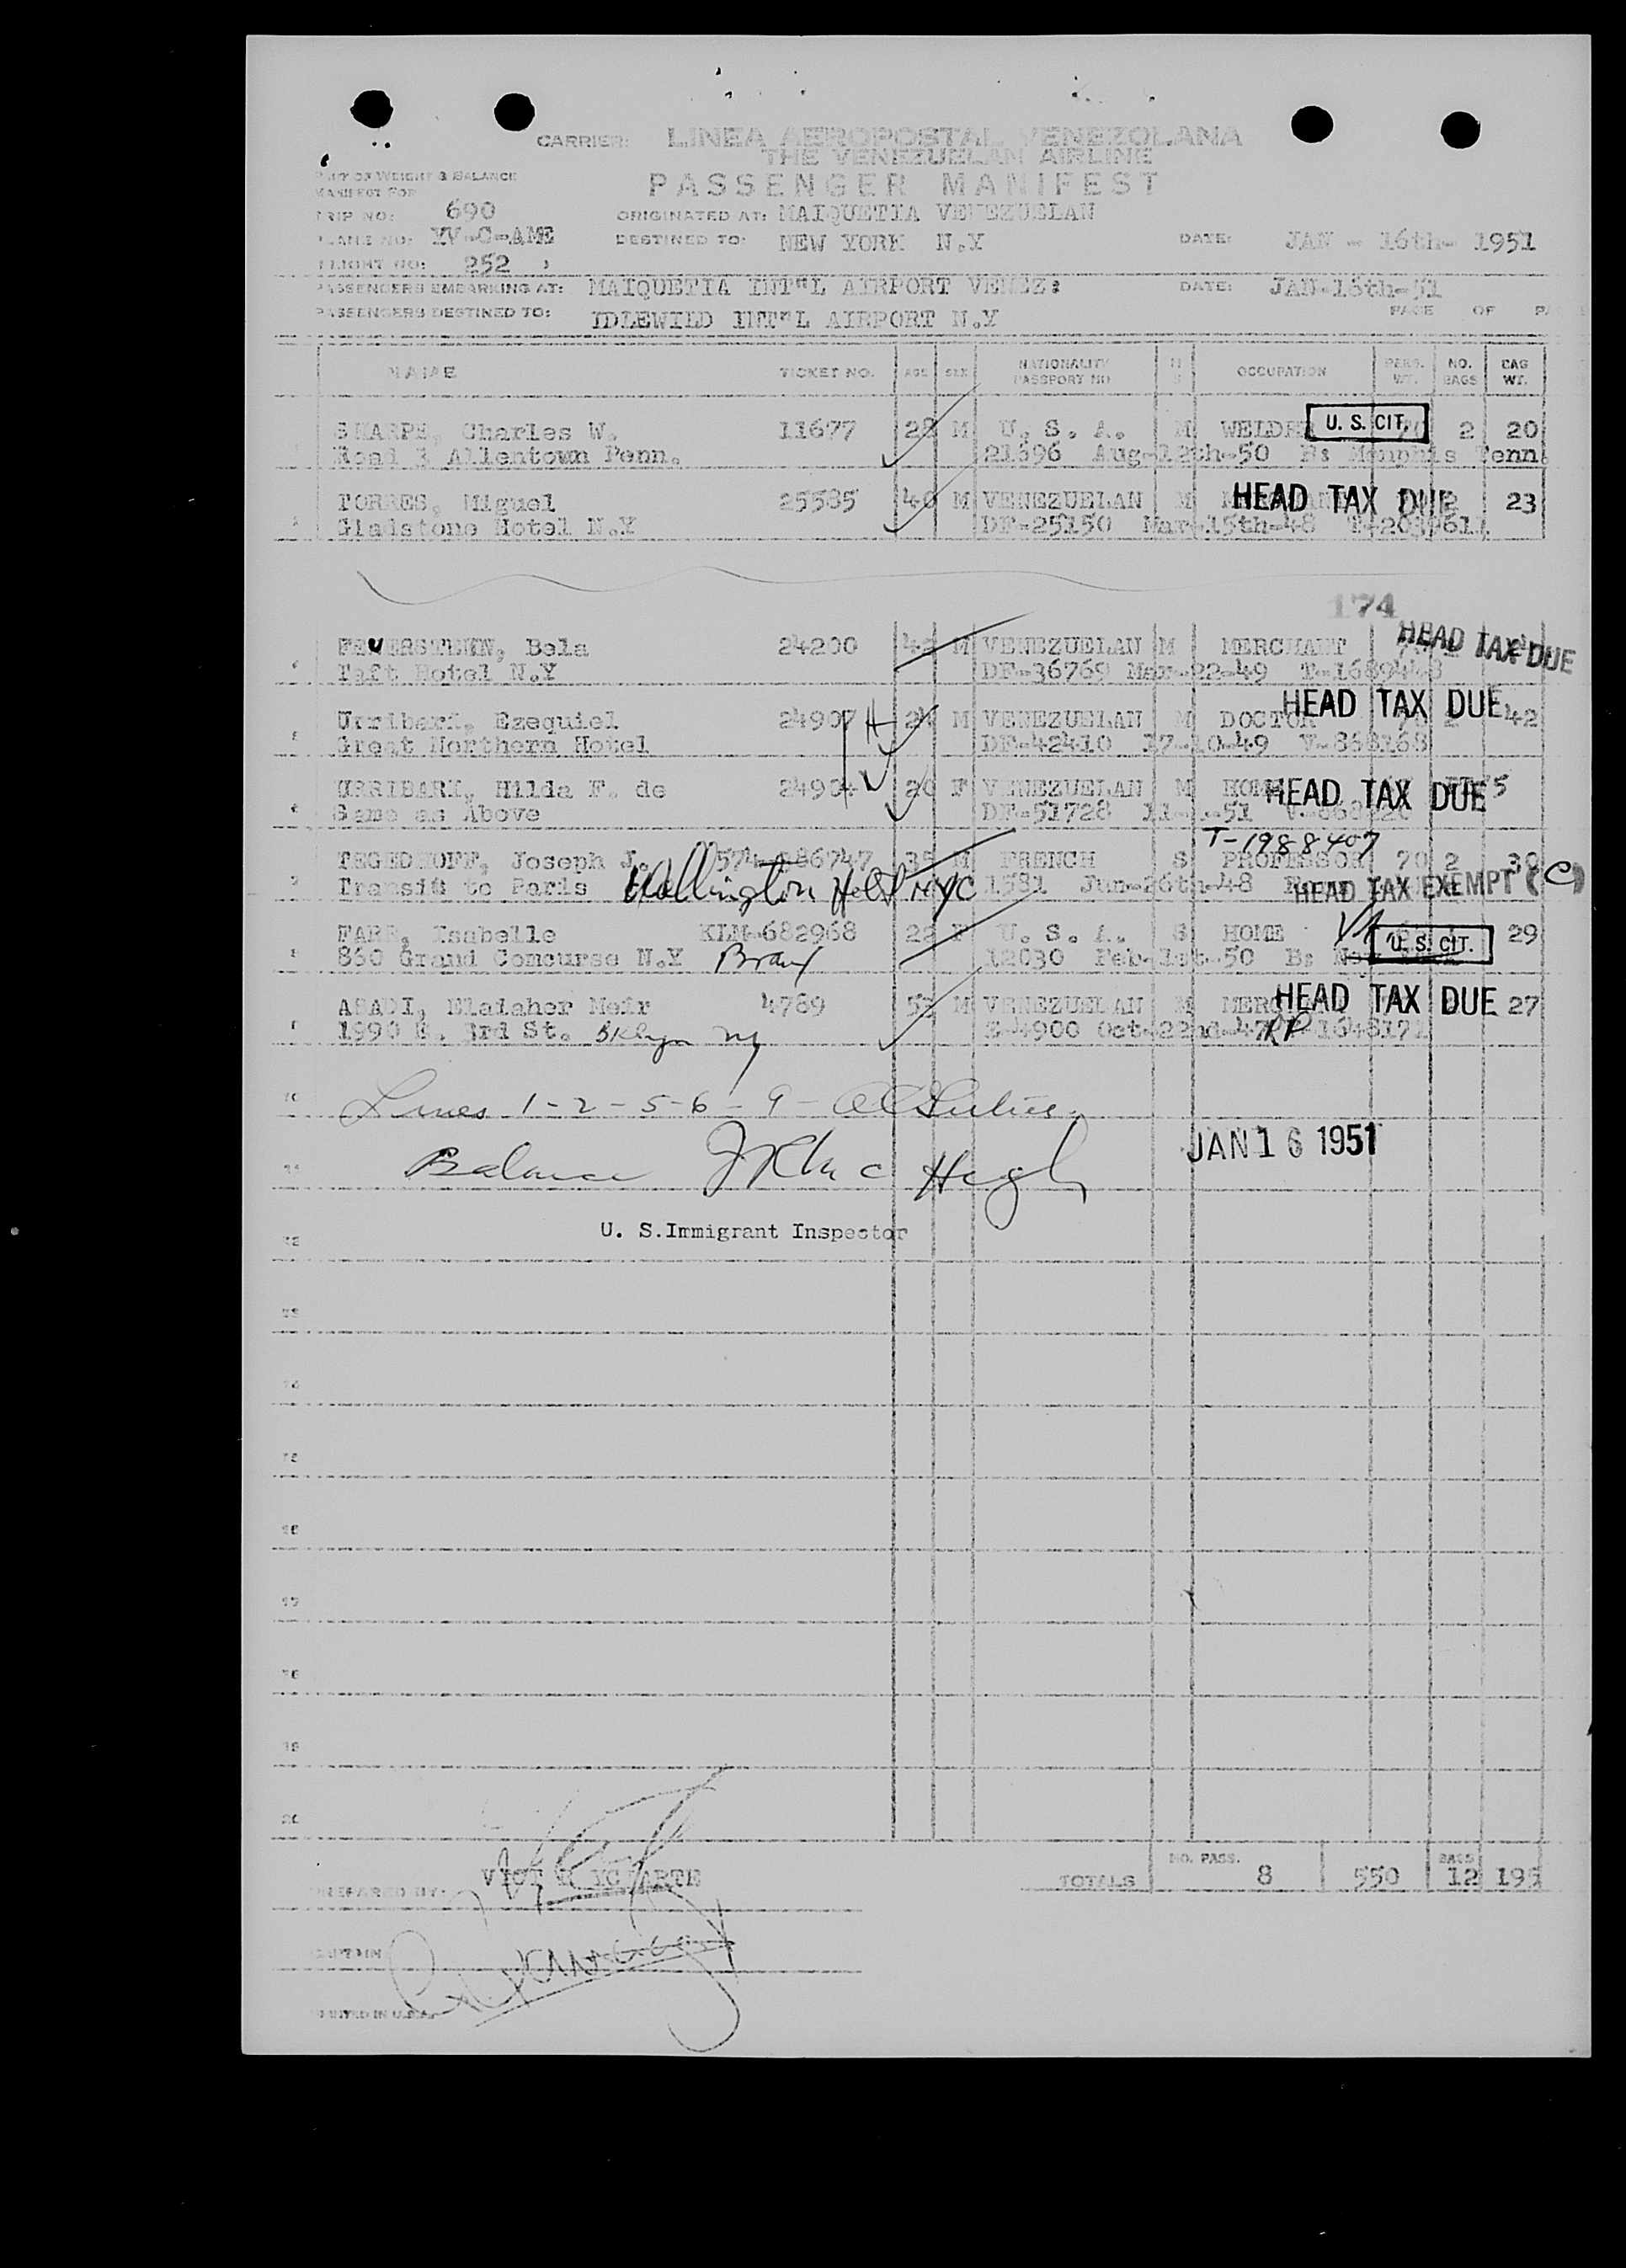 CARRIER: LINEA AEROPOSTAL VENEZOLANA
THE VENEZUELAN AIRLINE
PART OF WEIGHT & BALANCE
MANIFEST FOR
PASSENGER MANIFEST
TRIP NO: 690 ORIGINATED AT: MAIQUETIA VENEZUELAN
PLANE NO: YV-C-AME DESTINED TO: NEW YORK N.Y DATE: JAN - 16th- 1951
FLIGHT NO: 252
PASSENGERS EMBARKING AT: MAIQUETIA INT"L AIRPORT VENEZ: DATE: JAN-16th-51
PASSENGERS DESTINED TO: IDLEWILD INT"L AIRPORT N.Y PAGE OF
NAME TICKET NO. AGE SEX NATIONALITY PASSPORT NO OCCUPATION PERS. WT. NO. BAGS BAG WT.
SHARPE, Charles W. 11677 28 M U. S. A. M U. S. CIT. 2 20
Road 3 Allentown Penn. 21396 Aug-12th-50 B: Memphis Tenn.
TORRES, Miguel 25585 40 M VENEZUELAN M HEAD TAX DUE 2 23
Gladstone Hotel N.Y DF-25150 Mar-15th-48
174
FEUERSTEIN, Bela 24200 42 M VENEZUELAN M MERCHANT HEAD TAX DUE
Taft Hotel N.Y DF-36769 Mar-22-49 T-1689448
Urribarri, Ezequiel 24907 H M VENEZUELAN M DOCTOR HEAD TAX DUE 2 42
Great Northern Hotel DF-42410 17-10-49 V-868168
URRIBARI, Hilda F. de 20 F VENEZUELAN M HOME HEAD TAX DUE
Same as Above DF-51728
T-1988407
TEGEDHOFF, Joseph J. 35 M FRENCH S PROFESSOR 70 2 30
Transit to Paris Wellington Hotel NYC 1581 Jun-26th-48 HEAD TAX EXEMPT (C)
FARR, Isabelle KLM-682968 22 F U. S. A. S HOME U. S. CIT. 29
860 Grand Concourse N.Y Bronx 12030 Feb-1st-50 B: New York
ABADI, Elaiaher Meir 4789 M VENEZUELAN M HEAD TAX DUE 27
1990 E. 3rd St. Bklyn NY
10 Lines 1-2-5-6-9-
11 Balance JAN 16 1951
12 U. S.Immigrant Inspector
13
14
15
16
17
18
19
20
PREPARED BY: TOTALS NO. PASS. 8 550 BAGS 12 195
CAPTAIN
PRINTED IN U.S.A.